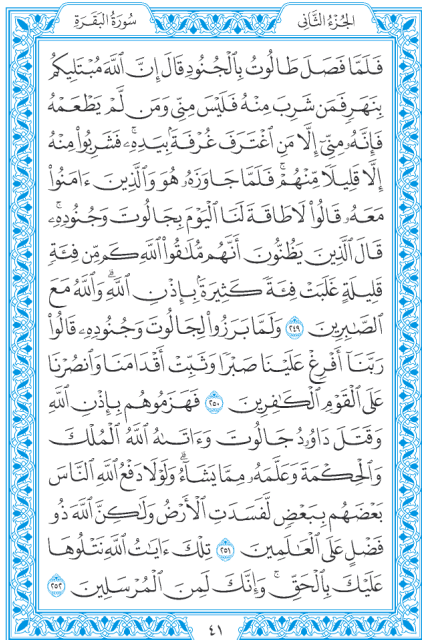 الجُزْءُ الثَّانِى
سُورَةُ البَقَرَةِ
فَلَمَّا فَصَلَ طَالُوتُ بِٱلْجُنُودِ قَالَ إِنَّ ٱللَّهَ مُبْتَلِيكُم
بِنَهَرٍ فَمَن شَرِبَ مِنْهُ فَلَيْسَ مِنِّى وَمَن لَّمْ يَطْعَمْهُ
فَإِنَّهُۥ مِنِّىٓ إِلَّا مَنِ ٱغْتَرَفَ غُرْفَةَۢ بِيَدِهِۦۚ فَشَرِبُوا۟ مِنْهُ
إِلَّا قَلِيلًا مِّنْهُمْۚ فَلَمَّا جَاوَزَهُۥ هُوَ وَٱلَّذِينَ ءَامَنُوا۟
مَعَهُۥ قَالُوا۟ لَا طَاقَةَ لَنَا ٱلْيَوْمَ بِجَالُوتَ وَجُنُودِهِۦۚ
قَالَ ٱلَّذِينَ يَظُنُّونَ أَنَّهُم مُّلَٰقُوا۟ ٱللَّهِ كَم مِّن فِئَةٍ
قَلِيلَةٍ غَلَبَتْ فِئَةً كَثِيرَةَۢ بِإِذْنِ ٱللَّهِۗ وَٱللَّهُ مَعَ
ٱلصَّٰبِرِينَ ٢٤٩ وَلَمَّا بَرَزُوا۟ لِجَالُوتَ وَجُنُودِهِۦ قَالُوا۟
رَبَّنَآ أَفْرِغْ عَلَيْنَا صَبْرًا وَثَبِّتْ أَقْدَامَنَا وَٱنصُرْنَا
عَلَى ٱلْقَوْمِ ٱلْكَٰفِرِينَ ٢٥٠ فَهَزَمُوهُم بِإِذْنِ ٱللَّهِ
وَقَتَلَ دَاوُۥدُ جَالُوتَ وَءَاتَىٰهُ ٱللَّهُ ٱلْمُلْكَ
وَٱلْحِكْمَةَ وَعَلَّمَهُۥ مِمَّا يَشَآءُۗ وَلَوْلَا دَفْعُ ٱللَّهِ ٱلنَّاسَ
بَعْضَهُم بِبَعْضٍ لَّفَسَدَتِ ٱلْأَرْضُ وَلَٰكِنَّ ٱللَّهَ ذُو
فَضْلٍ عَلَى ٱلْعَٰلَمِينَ ٢٥١ تِلْكَ ءَايَٰتُ ٱللَّهِ نَتْلُوهَا
عَلَيْكَ بِٱلْحَقِّۚ وَإِنَّكَ لَمِنَ ٱلْمُرْسَلِينَ ٢٥٢
٤١